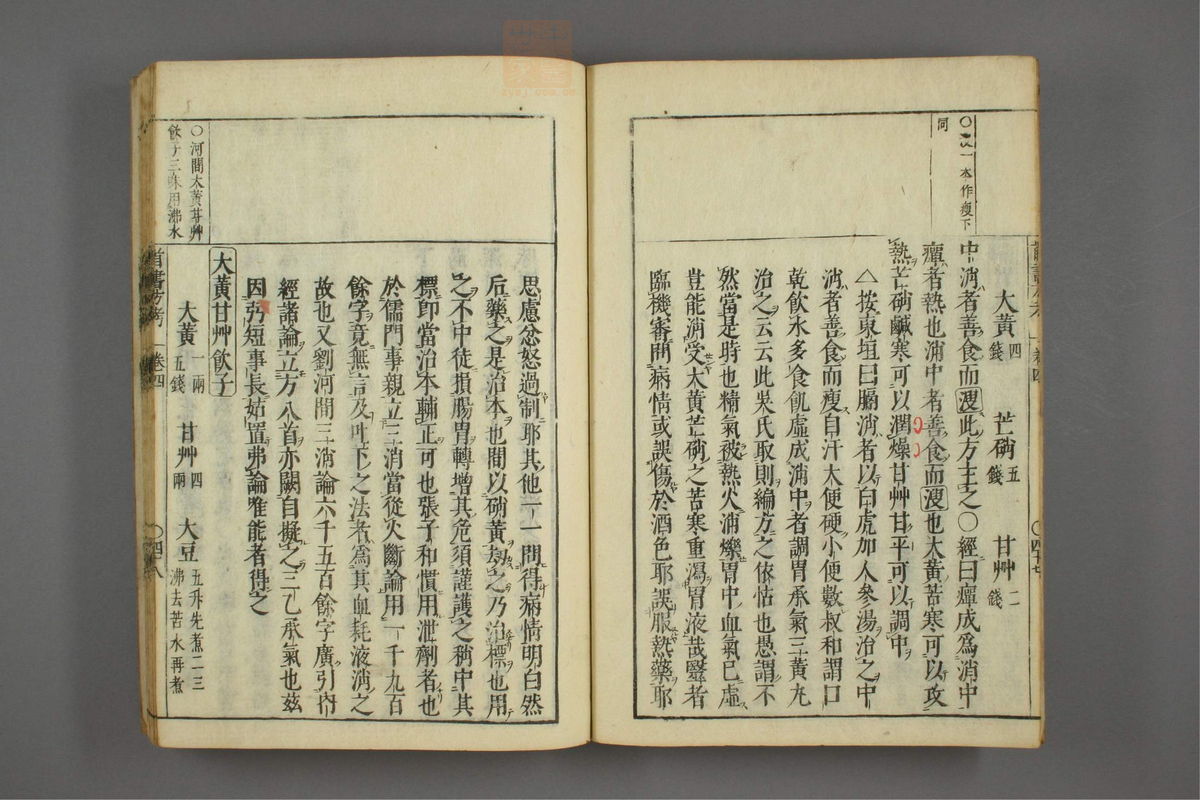 ○一本作瘦下
同
大黃四錢 芒硝五錢 甘艸二錢
中消者善食而溲此方主之○經曰癉成爲消中
癉者熱也消中者善食而溲也大黃苦寒可以攻
熱芒硝鹹寒可以潤燥甘艸甘平可以調中
△按東垣曰膈消者以白虎加人參湯治之中
消者善食而瘦自汗大便硬小便數叔和謂口
乾飲水多食飢虛成消中者調胃承氣三黃丸
治之云云此吳氏取則編方之依怙也愚謂不
然當是時也精氣被熱火消爍胃中血氣已虛
豈能消受大黃芒硝之苦寒重瀉胃液哉醫者
臨機審問病情或誤傷於酒色耶誤服熱藥耶
思慮忿怒過制耶其他一一問得病情明白然
后藥之是治本也間以硝黃劫之乃治標也用
之不中徒損腸胃轉增其危須謹護之稍中其
標卽當治本輔正可也張子和慣用泄劑者也
於儒門事親立三消當從火斷論用一千九百
餘字竟無言及吐下之法者爲其血耗液消之
故也又劉河間三消論六千五百餘字廣引內
經諸論立方八首亦闕自擬之三乙承氣也茲
因說短事長姑置弗論唯能者得之
○河間大黃甘艸
飲子三味用沸水
大黃甘艸飲子
大黃一兩五錢 甘艸四兩 大豆五升先煮二三沸去苦水再煮
方考 卷四
○四十八